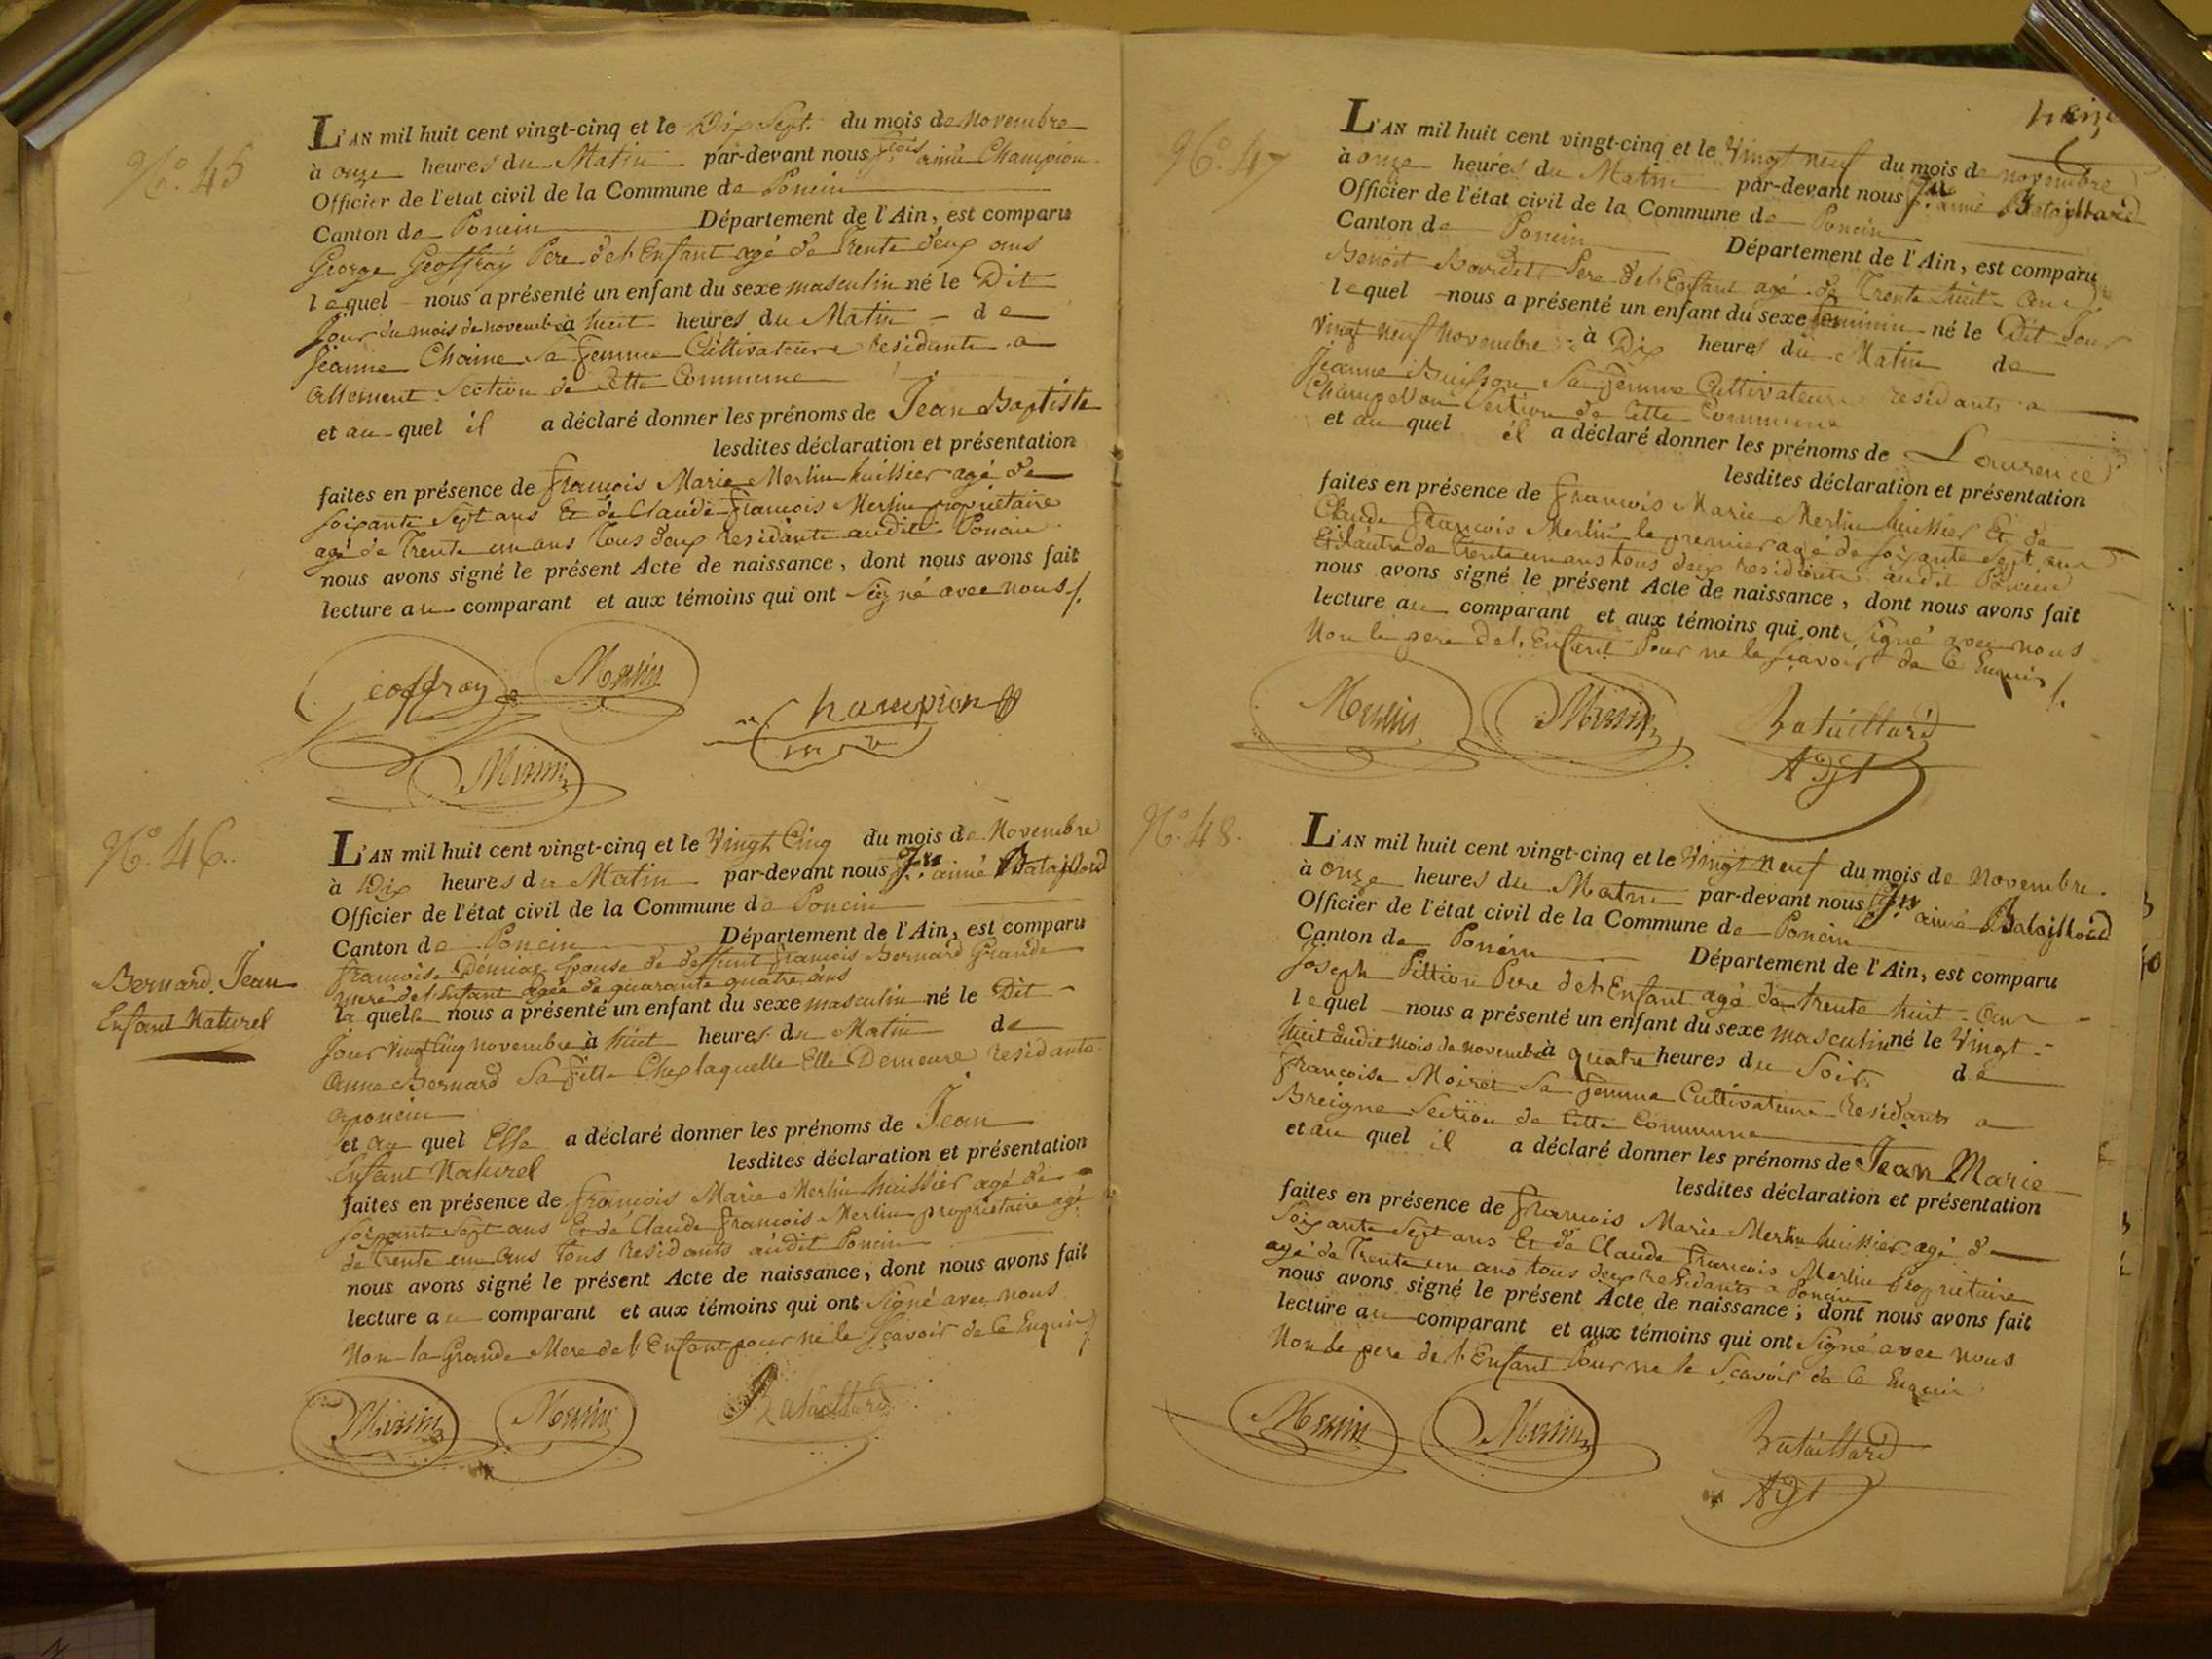 N.º 45
L'AN mil huit cent vingt-cinq et le Dix Sept. du mois de Novembre
à onze heures du Matin par-devant nous f.çois aimé Champion
Officier de l'état civil de la Commune de Poncin
Canton de Poncin Département de l'Ain, est comparu
George Geoffray Pere de l'Enfant agé de Trente deux ans
lequel nous a présenté un enfant du sexe masculin né le Dit
Jour du mois de novembre à huit heures du Matin de
Jeanne Chaine Sa femme Cultivateurs residants a
Allement Section de Cette Commune
et au-quel il a déclaré donner les prénoms de Jean Baptiste
lesdites déclaration et présentation
faites en présence de François Marie Merlin huissier agé de
soixante Sept ans Et de Claude François Merlin propriétaire
agé de Trente un ans Tous deux residants audit Poncin
nous avons signé le présent Acte de naissance, dont nous avons fait
lecture au comparant et aux témoins qui ont Signé avec nous /.
Geoffray Merlin
Champion
Merlin
N.º 46.
Bernard Jean
Enfant Naturel
L'AN mil huit cent vingt-cinq et le Vingt Cinq du mois de Novembre
à Dix heures du Matin par-devant nous aimé Bataillard
Officier de l'état civil de la Commune de Poncin
Canton de Poncin Département de l'Ain, est comparu
françoise Epouse de deffunt françois Bernard Grande
mere de l'Enfant agée de quarante quatre ans
la quelle nous a présenté un enfant du sexe masculin né le Dit
Jour Vingt Cinq novembre à huit heures du Matin de
Anne Bernard Sa fille Chez laquelle Elle Demeure residante
a poncin
et au quel Elle a déclaré donner les prénoms de Jean
Enfant Naturel lesdites déclaration et présentation
faites en présence de françois Marie Merlin huissier agé de
soixante Sept ans Et de Claude françois Merlin propriétaire agé
de Trente un ans Tous residants audit Poncin
nous avons signé le présent Acte de naissance, dont nous avons fait
lecture au comparant et aux témoins qui ont Signé avec nous
Non la Grande Mere de l'Enfant pour ne le Sçavoir de Ce Enquis /
Merlin Merlin Bataillard
N.º 47
L'AN mil huit cent vingt-cinq et le Vingt neuf du mois de novembre
à onze heures du Matin par-devant nous aimé Bataillard
Officier de l'état civil de la Commune de Poncin
Canton de Poncin Département de l'Ain, est comparu
Benoit Pere de l'Enfant agé de Trente huit ans
lequel nous a présenté un enfant du sexe feminin né le Dit Jour
Vingt neuf novembre à Dix heures du Matin de
Jeanne Buisson Sa femme Cultivateurs residants a
Champellon Section de Cette Commune
et au quel il a déclaré donner les prénoms de Laurence
lesdites déclaration et présentation
faites en présence de François Marie Merlin huissier Et de
Claude François Merlin le premier agé de soixante Sept ans
Et l'autre de trente un ans tous deux residants audit Poncin
nous avons signé le présent Acte de naissance, dont nous avons fait
lecture au comparant et aux témoins qui ont Signé avec nous
Non le pere de l'Enfant Pour ne le sçavoir de Ce Enquis /.
Merlin Merlin Bataillard
Adjt
N.º 48.
L'AN mil huit cent vingt-cinq et le Vingt neuf du mois de Novembre
à onze heures du Matin par-devant nous aimé Bataillard
Officier de l'état civil de la Commune de Poncin
Canton de Poncin Département de l'Ain, est comparu
Joseph Pittion Pere de l'Enfant agé de trente huit ans
lequel nous a présenté un enfant du sexe masculin né le Vingt
huit dudit mois de Novembre à quatre heures du Soir de
françoise Moiret Sa femme Cultivateurs residants a
Breigne Section de Cette Commune
et au quel il a déclaré donner les prénoms de Jean Marie
lesdites déclaration et présentation
faites en présence de françois Marie Merlin huissier agé de
Soixante Sept ans Et de Claude François Merlin Propriétaire
agé de Trente un ans tous deux residants a Poncin
nous avons signé le présent Acte de naissance, dont nous avons fait
lecture au comparant et aux témoins qui ont Signé avec nous
Non le pere de l'Enfant Pour ne le Sçavoir de Ce Enquis
Merlin Merlin Bataillard
Adjt